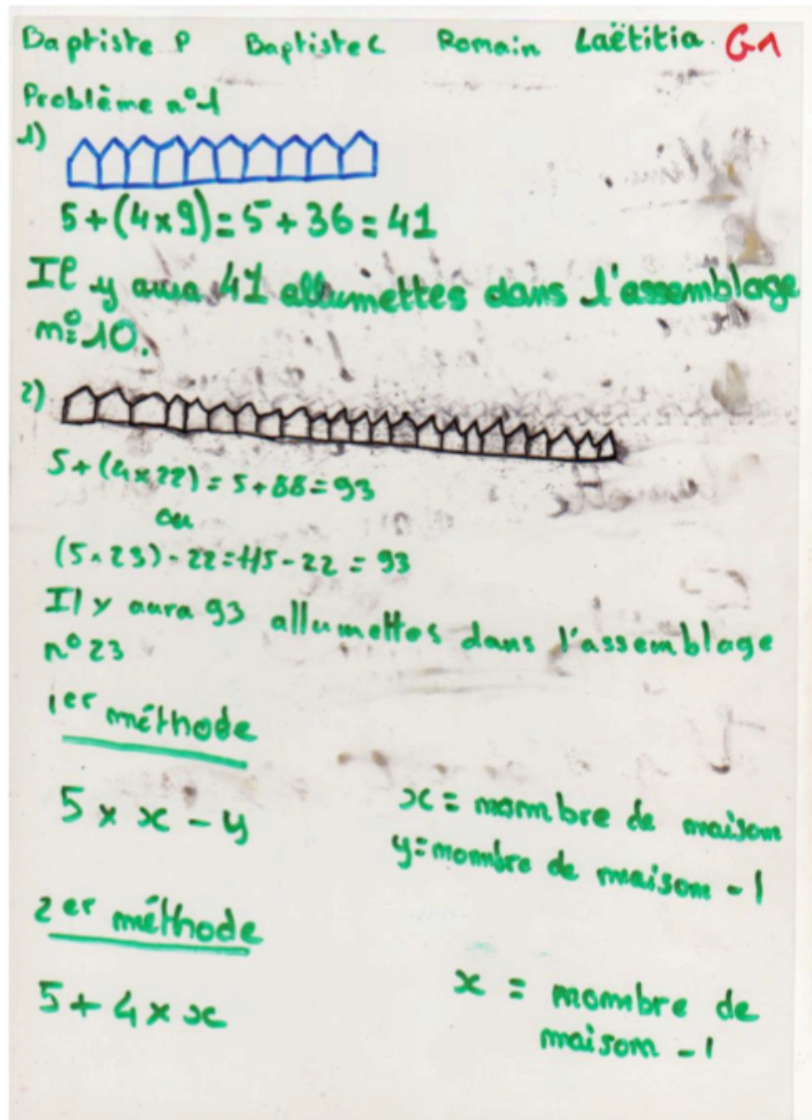 Baptiste P Baptiste C Romain Laëtitia G1
Problème n°1
1)
5+(4×9)=5+36=41
Il y aura 41 allumettes dans l'assemblage
n°10.
2)
5+(4×22)=5+88=93
ou
(5×23)-22=115-22=93
Il y aura 93 allumettes dans l'assemblage
n°23
1er méthode
5 × x - y
x = nombre de maison
y = nombre de maison - 1
2er méthode
5 + 4 × x
x = nombre de
maison - 1